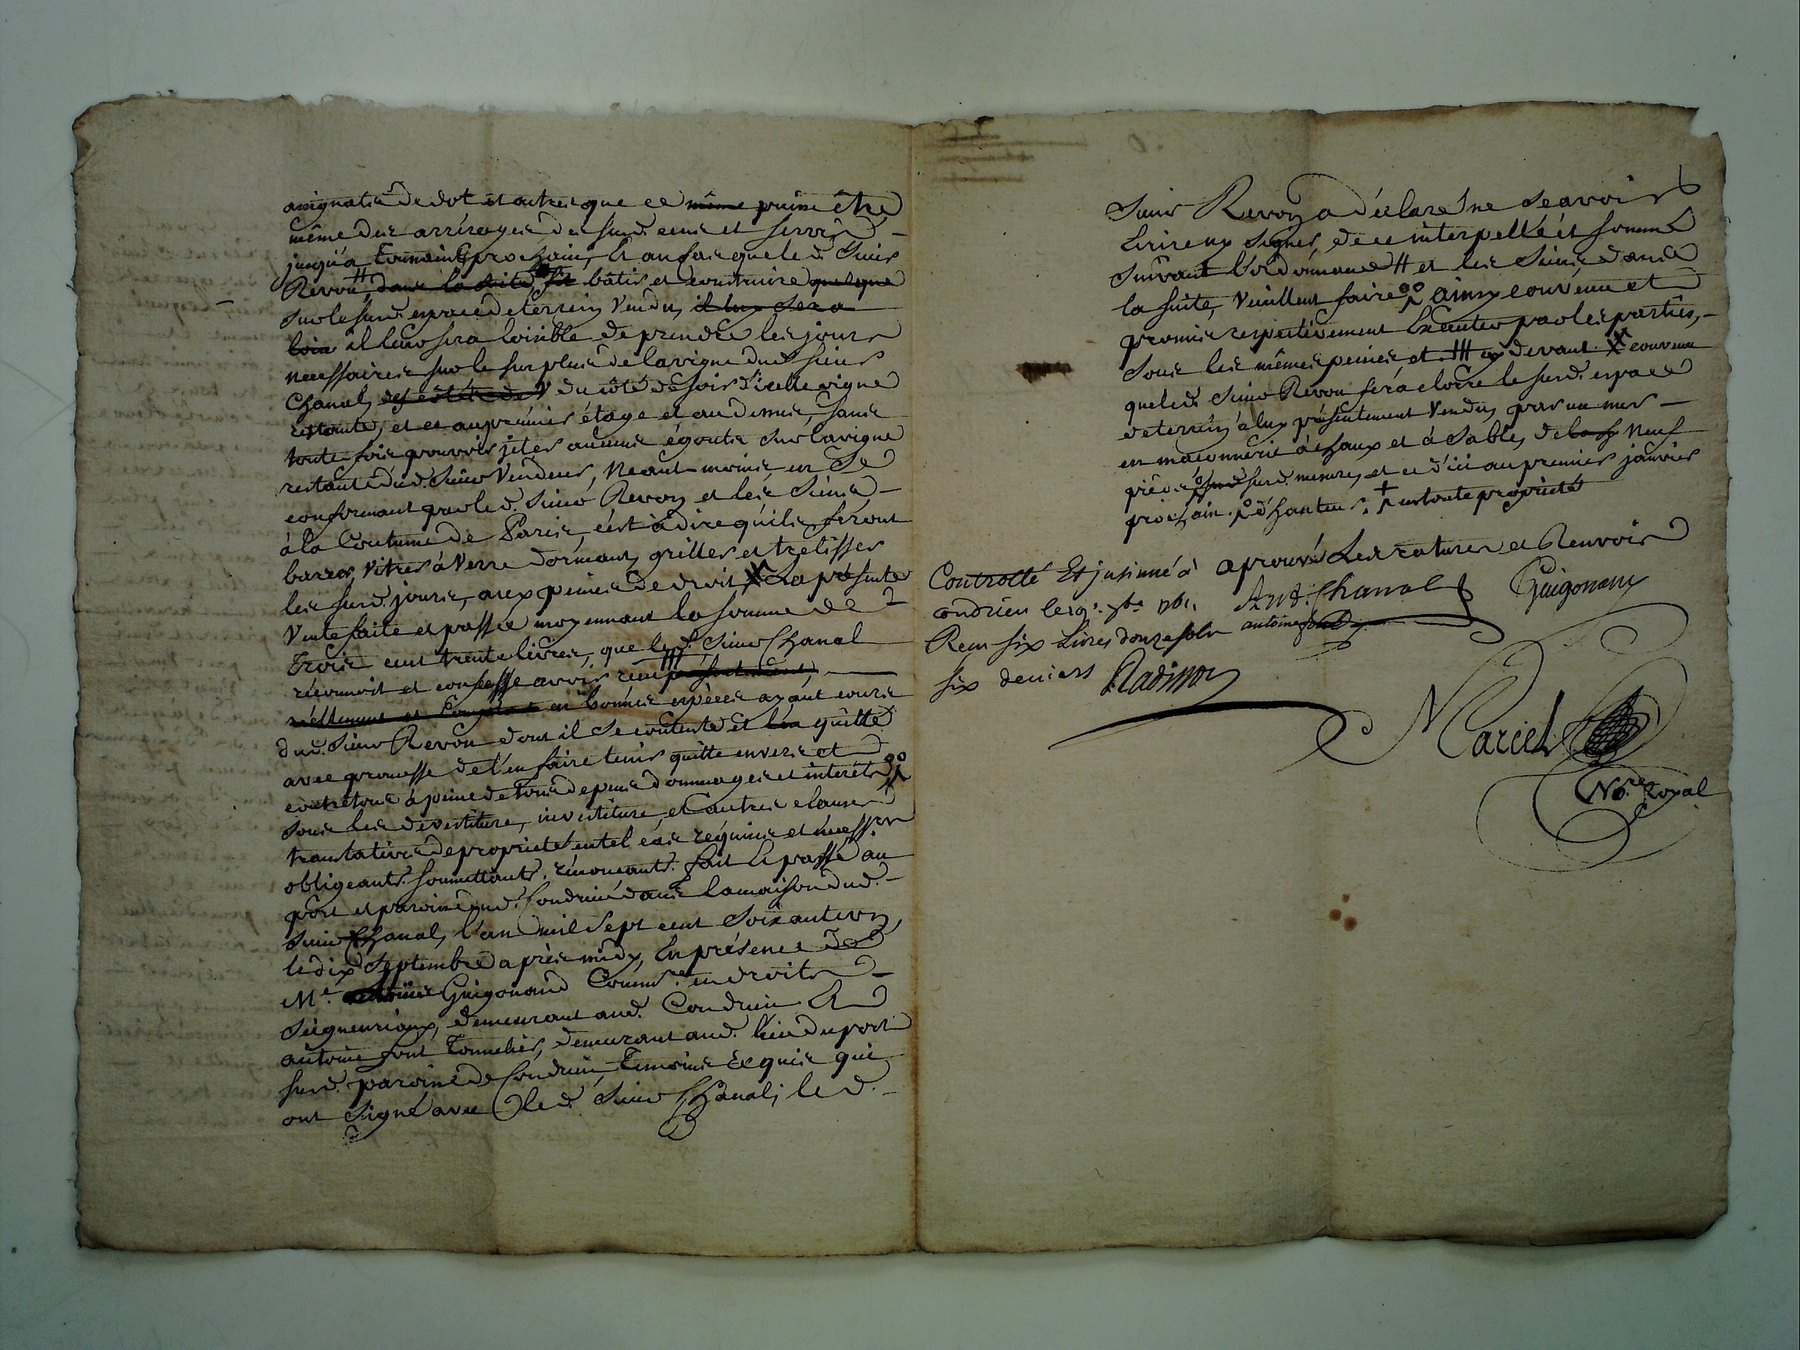 assignation de dot et autres que ce même puisse être
même des arrérages du susd. cens et servis
jusqu'à toussaint prochain, Et au fais que led. Sieur
Revon # dans la suite fit bâtir et construire quelque
sur le susd. espace de terrein vendu, il luy sera
loisi il leur sera loisible de prendre les jours
necessaires sur le surplus de la vigne dud. sieur
Chanal, des côtés de V du côté de soir d'icelle vigne
restante, et et au premier étage et au dernier, sans
toute fois pouvoir jeter aucuns égouts sur la vigne
restante dud. Sieur Vendeur, Neant-moins en se
conformant par led. Sieur Revon et les siens
à la Coutume de Paris, c'est à dire qu'ils feront
barrer, vitrer à verre dormant, griller et trelisser
les susd. jours, aux peines de droit X La présente
Vente faite et passée moyennant la somme de
Trois cent trente livres, que led. Sieur Chanal
reconnoit et confesse avoir reçu
réellement et comptant en bonnes espèces ayant cours
dud. Sieur Revon dont il se contente et l'en quitte
avec promesse de l'en faire tenir quitte envers et
contre tous à peine de tous depens dommages et interets
sous les devestiture, investiture, et autres clauses
translatives de propriete en tel cas requises et necessres
obligeants. soumettants. renonçants. fait et passé au
port et paroisse dud. Condrieu dans la maison dud.
sieur Chanal, l'an mil sept cent soixante un
le dix septembre après midy, En présence de
Me. Guigonand Commre. en droits
seigneuriaux, demeurant aud. Condrieu Et
antoine font Tonnelier, demeurant aud. lieu du port
susd. paroisse de Condrieu, Temoins Requis qui
ont signé avec led. sieur Chanal; le d.
sieur Revon a déclaré ne sçavoir
Ecrire ny signer, de ce interpellé et sommé
suivant l'ordonnance # et les siens dans
la suite, veuillent faire ainsy convenu et
promis respectivement Exécuter par les parties,
sous les mêmes peines et ### cy devant X convenu
que led. Sieur Revon fera clorre le susd. espace
de terrein à luy présentement vendu, par un mur
en maçonnerie à chaux et à sable, de neuf
pieds susd. mesure, et ce d'ici au premier janvier
prochain de hauteur. + en toute propriété
aprouvé Les ratures et Renvois
Controllé Et insinué à
condrieu le 19e. 7bre 1761.
Reçu six Livres douze sols
six deniers Radisson
Ant. Chanal
Guigonand
antoine font
Marcel
Nore. Royal